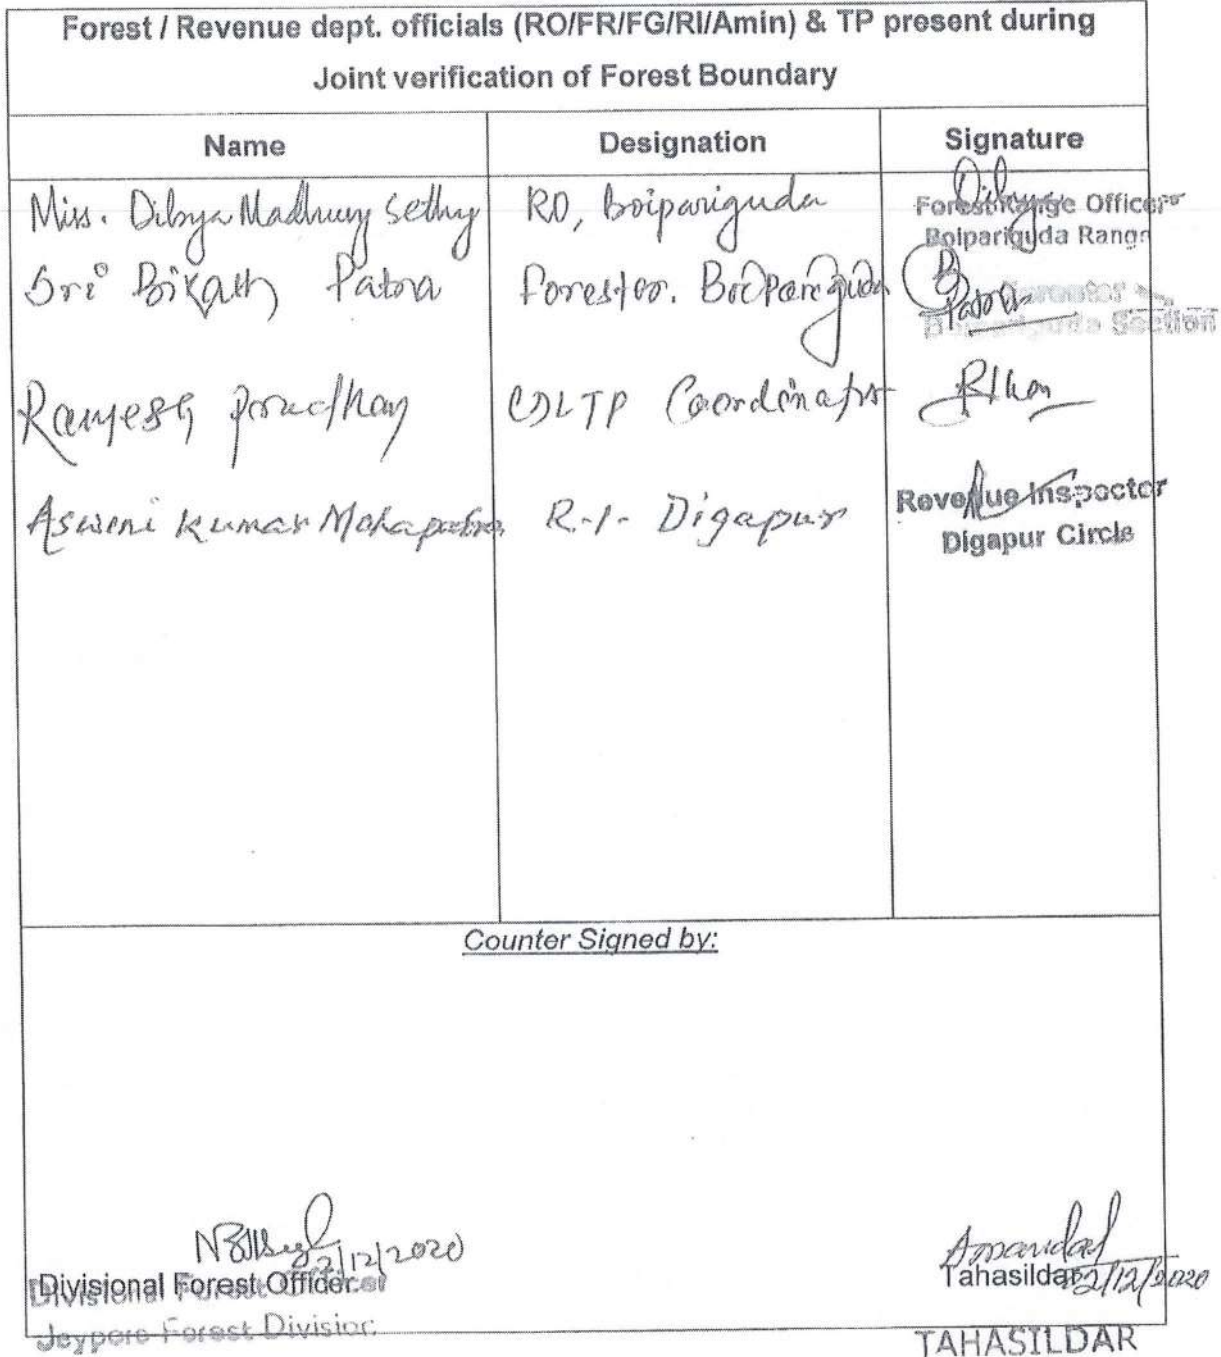 Forest / Revenue dept. officials (RO/FR/FG/RI/Amin) & TP present during
Joint verification of Forest Boundary
Name Designation Signature
Miss. Dibya Madhury Sethy RO, Boipariguda
Forest Range Officer
Boipariguda Range
Sri Bikash Patra Forester. Boipariguda Patra
Forester
Boipariguda Section
Ramesh Pradhan Coordinator
Aswini Kumar Mohapatra R.I. Digapur
Revenue Inspector
Digapur Circle
Counter Signed by:
2/12/2020
Divisional Forest Officer
Jeypore Forest Division
Tahasildar 2/12/2020
TAHASILDAR